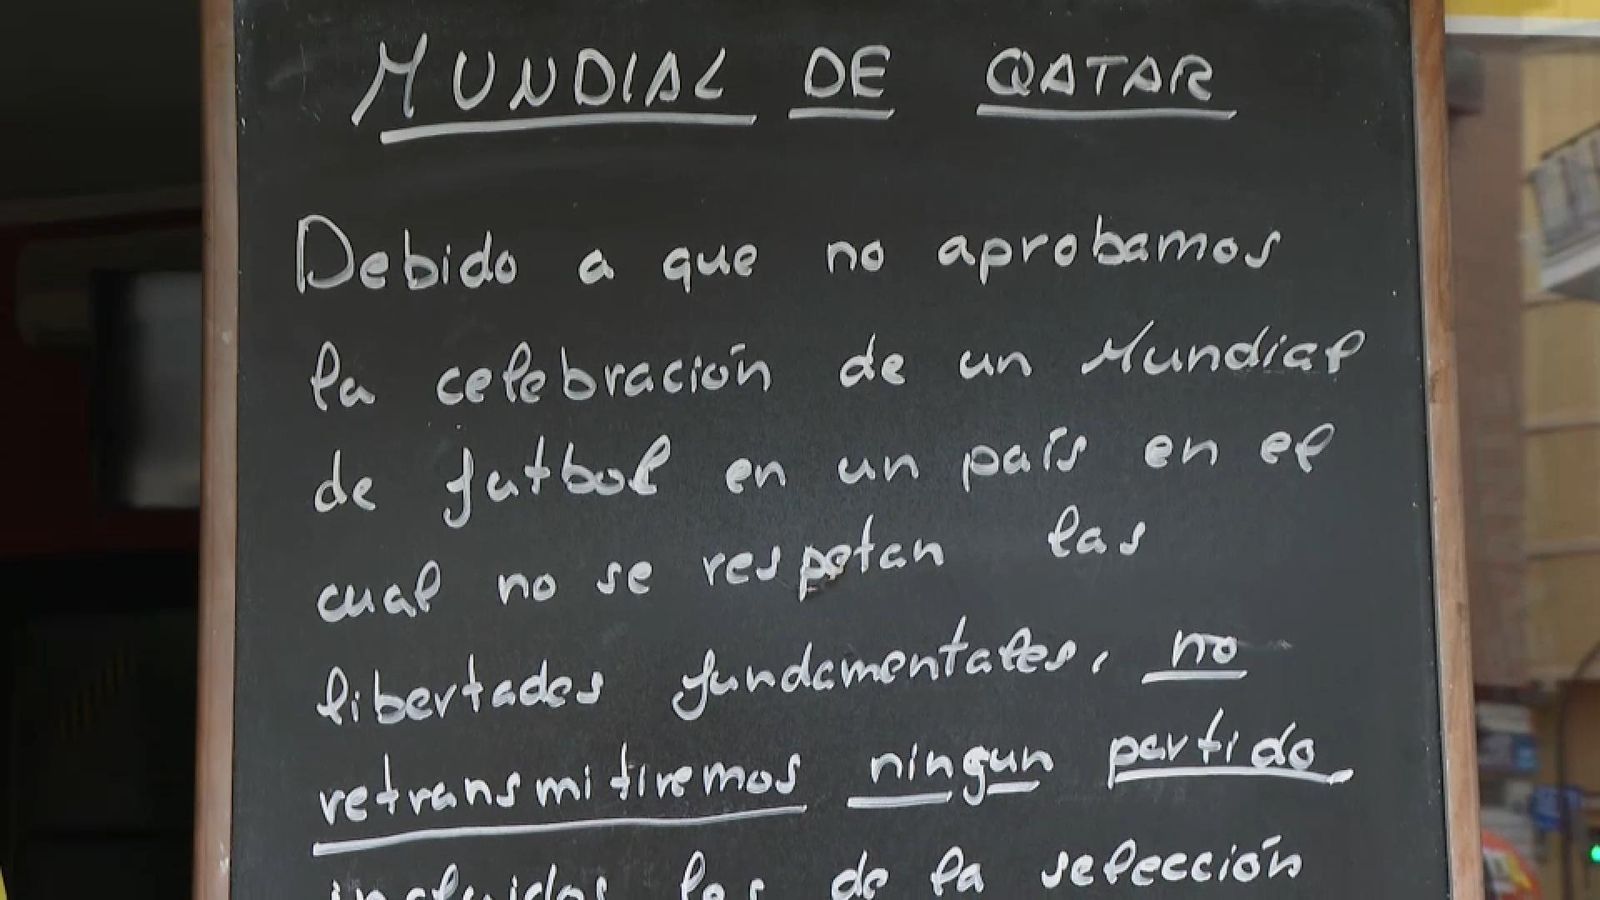 MUNDIAL DE QATAR
Debido a que no aprobamos
la celebración de un Mundial
de futbol en un país en el
cual no se respetan las
libertades fundamentales, no
retransmitiremos ningun partido
incluidos los de la selección